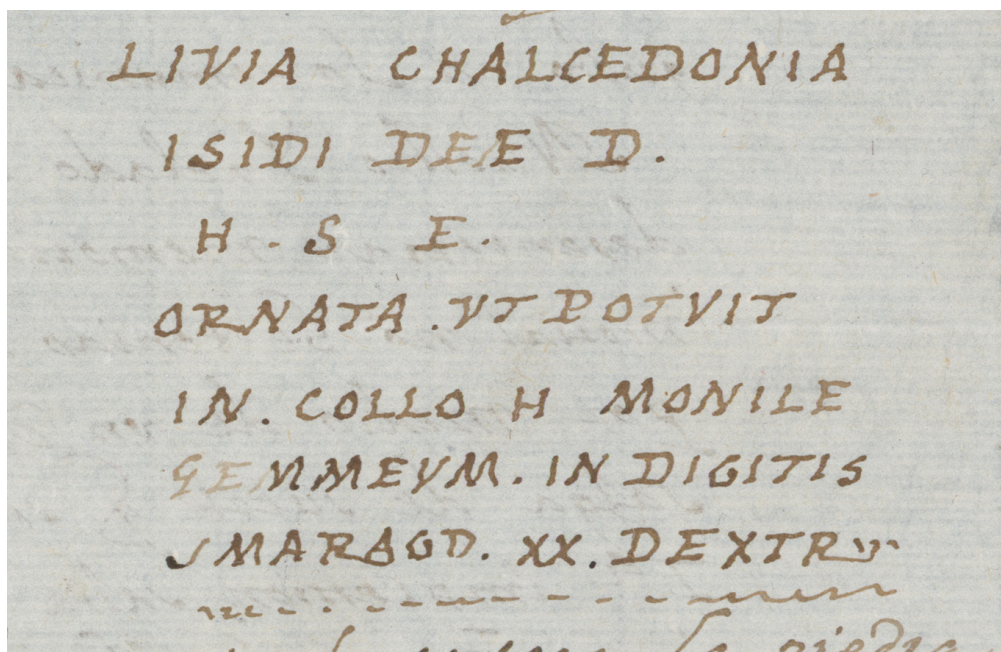 LIVIA CHALCEDONIA
ISIDI DEE D.
H . S E .
ORNATA . VT POTVIT
IN . COLLO H MONILE
GEMMEVM . IN DIGITIS
SMARAGD . XX . DEXTR
la piedra